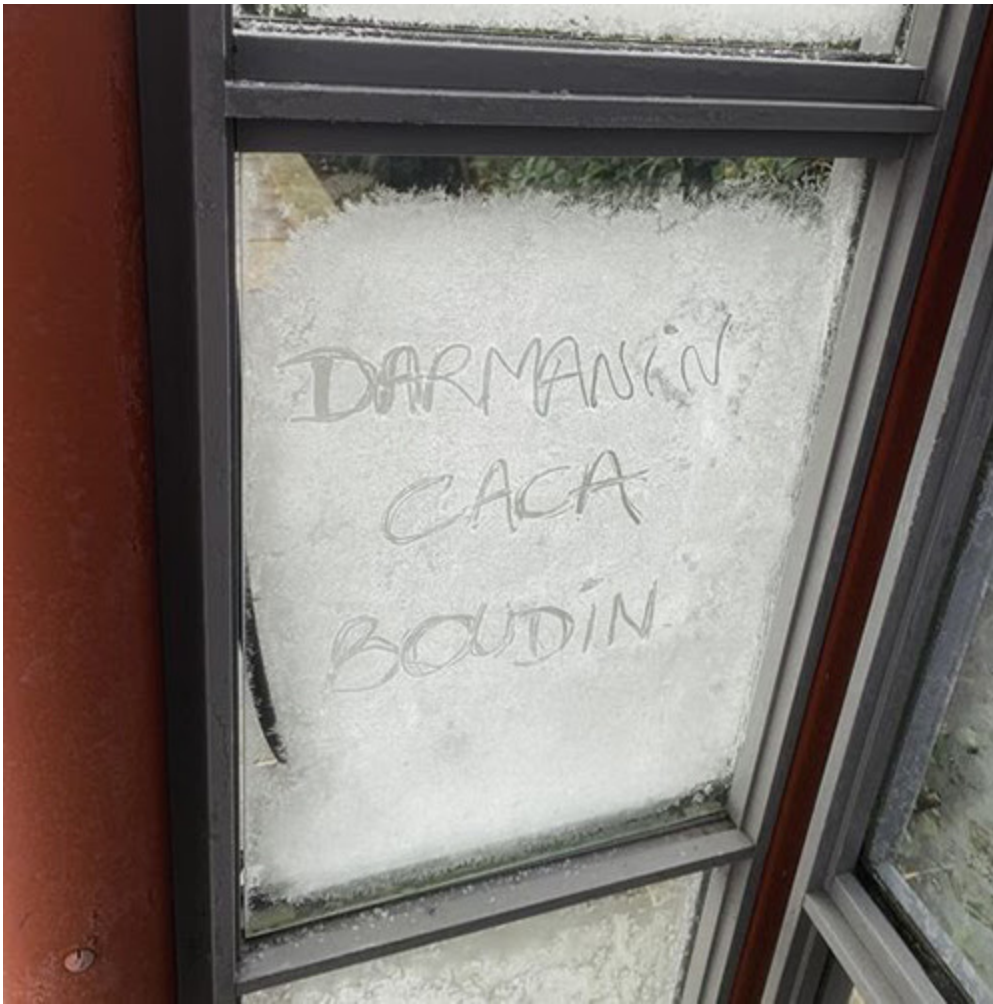 DARMANiN
CACA
BOUDiN